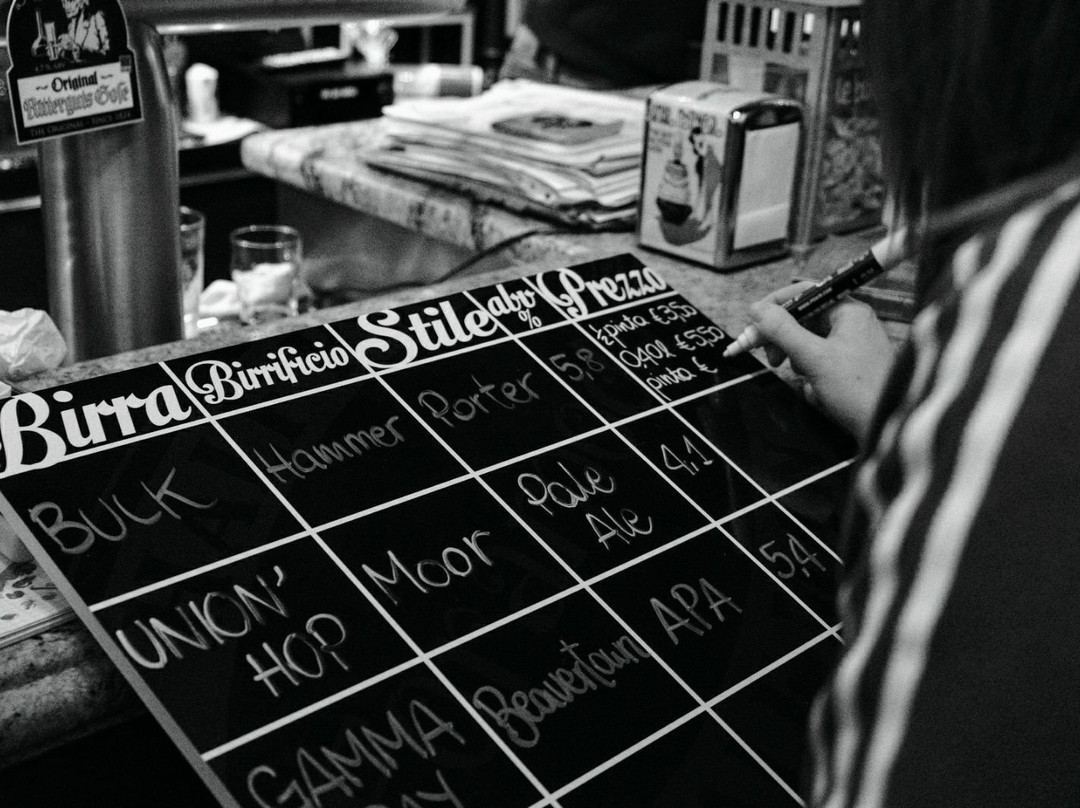 Original
Ritterguts Gose
THE ORIGINAL - SINCE 1824
Birra Birrificio Stile abv % Prezzo
BULK Hammer Porter 5,8 ½ pinta €3,50
0,40l €5,50
pinta €
UNION'
HOP Moor Pale
Ale 4,1
GAMMA Beavertown APA 5,4